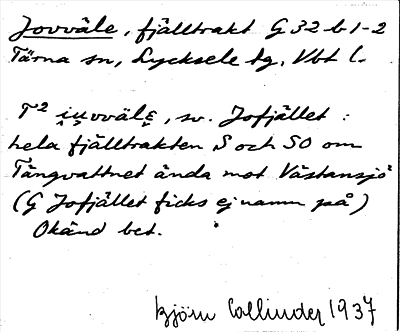 Jovväle, fjälltrakt G 32 b 1-2
Tärna sn, Lycksele lg, Vbt l.
T² i̯u̯vvälε̮, sv. Jofjället :
hela fjälltrakten S och SO om
Tängvattnet ända mot Västansjö
(G Jofjället ficks ej namn på)
Okänd bet.
Björn Collinder 1937